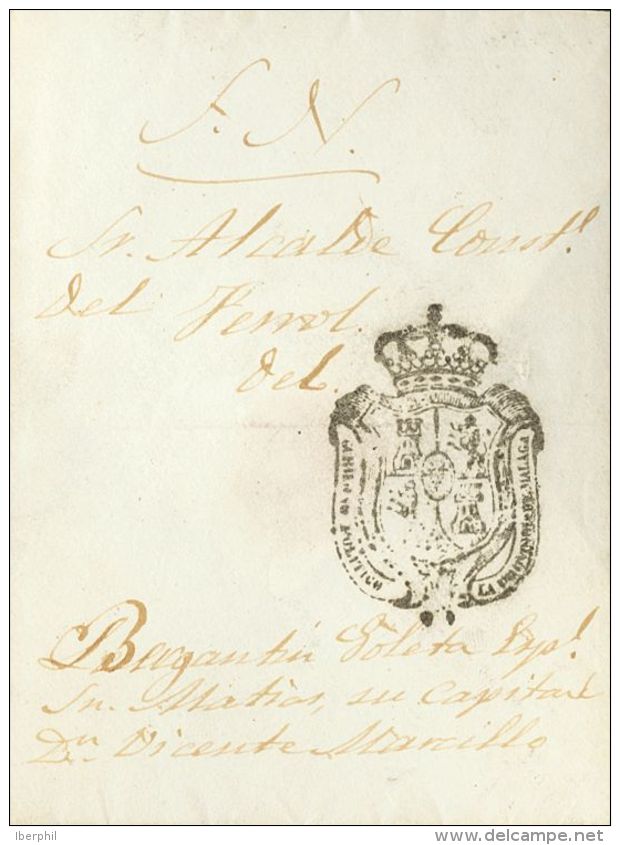 S. N.
Sr. Alcalde Constl.
del Ferrol.
del.
GOBIERNO POLITICO
LA PROVINCIA DE MALAGA
Bergantin Goleta Espl.
Sn. Matias, su capitan
Dn. Vicente Marcillo
Iberphil
delcampe.net